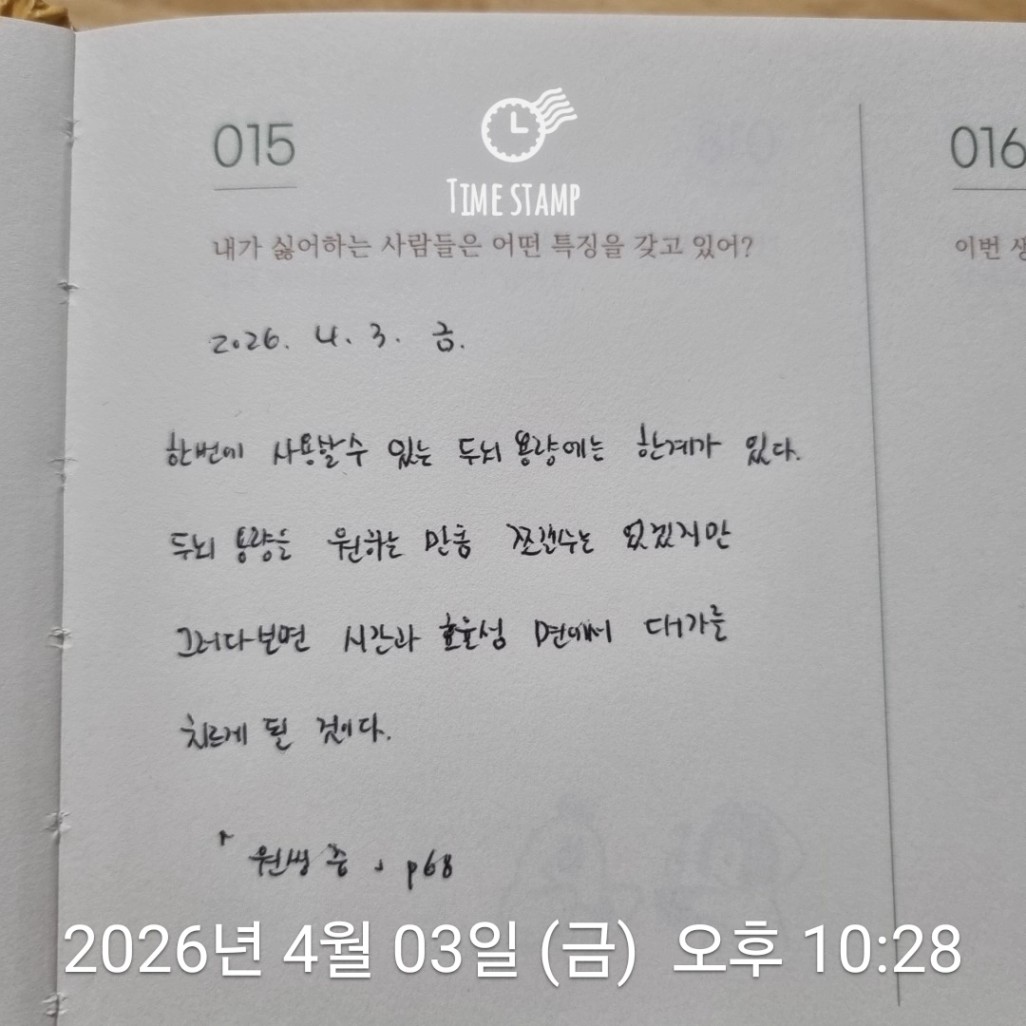 015
TIME STAMP
내가 싫어하는 사람들은 어떤 특징을 갖고 있어?
2026. 4. 3. 금.
한번에 사용할수 있는 두뇌 용량에는 한계가 있다.
두뇌 용량을 원하는 만큼 쪼갤수는 있겠지만
그러다보면 시간과 효율성 면에서 대가를
치르게 될 것이다.
「원씽 중」 p68
016
이번
2026년 4월 03일 (금) 오후 10:28